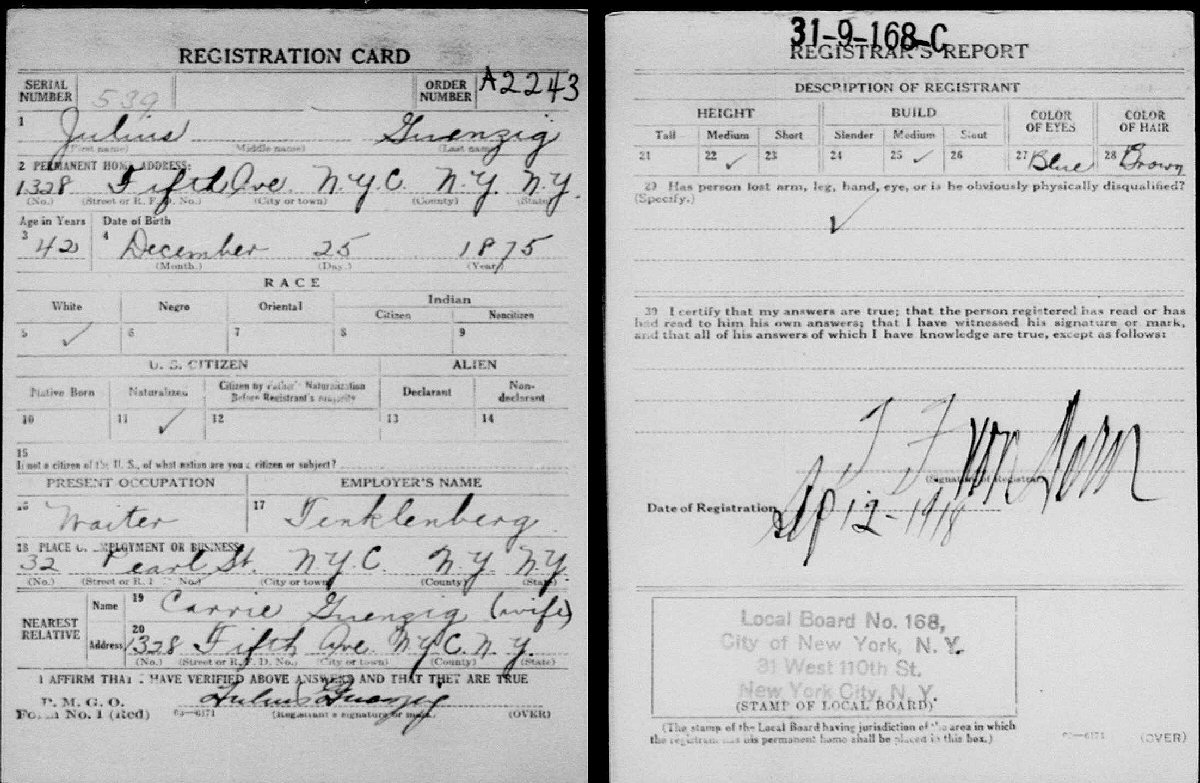 REGISTRATION CARD
SERIAL NUMBER 539 ORDER NUMBER A2243
1 Julius Guenzig
(First name) (Middle name) (Last name)
2 PERMANENT HOME ADDRESS:
1328 Fifth Ave. N.Y.C. N.Y. N.Y.
(No.) (Street or R. F. D. No.) (City or town) (County) (State)
Age in Years Date of Birth
3 42 4 December 25 1875
(Month.) (Day.) (Year)
RACE
White Negro Oriental Indian
Citizen Noncitizen
5 ✓ 6 7 8 9
U. S. CITIZEN ALIEN
Native Born Naturalized Citizen by Father's Naturalization Before Registrant's majority Declarant Non-declarant
10 11 ✓ 12 13 14
15
If not a citizen of the U. S., of what nation are you a citizen or subject?
PRESENT OCCUPATION EMPLOYER'S NAME
16 Waiter 17 Tenklenberg
18 PLACE OF EMPLOYMENT OR BUSINESS:
32 Pearl St. N.Y.C. N.Y. N.Y.
(No.) (Street or R. F. D. No.) (City or town) (County) (State)
NEAREST RELATIVE Name 19 Carrie Guenzig (wife)
Address 20 1328 Fifth Ave N.Y.C. N.Y.
(No.) (Street or R. F. D. No.) (City or town) (County) (State)
I AFFIRM THAT I HAVE VERIFIED ABOVE ANSWERS AND THAT THEY ARE TRUE
P. M. G. O.
Form No. 1 (Red) 03—6171 Julius Guenzig
(Registrant's signature or mark) (OVER)
31-9-168-C
REGISTRAR'S REPORT
DESCRIPTION OF REGISTRANT
HEIGHT BUILD COLOR OF EYES COLOR OF HAIR
Tall Medium Short Slender Medium Stout
21 22 ✓ 23 24 25 ✓ 26 27 Blue 28 Brown
29 Has person lost arm, leg, hand, eye, or is he obviously physically disqualified?
(Specify.)
✓
30 I certify that my answers are true; that the person registered has read or has
had read to him his own answers; that I have witnessed his signature or mark,
and that all of his answers of which I have knowledge are true, except as follows:
(Signature of Registrar)
Date of Registration Sep 12-1918
Local Board No. 168,
City of New York, N. Y.
31 West 110th St.
New York City, N. Y.
(STAMP OF LOCAL BOARD)
(The stamp of the Local Board having jurisdiction of the area in which
the registrant has his permanent home shall be placed in this box.)
03—6171 (OVER)